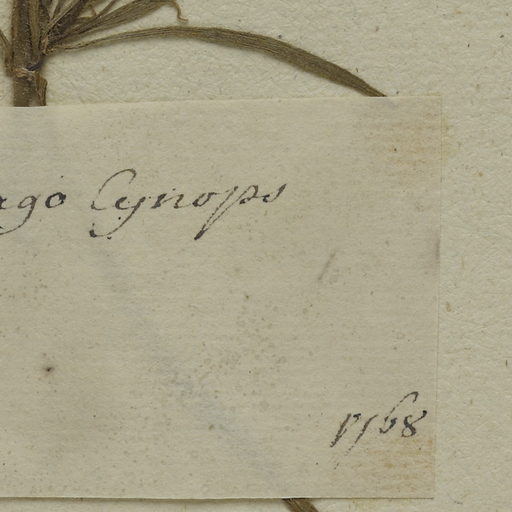 ago Cynops
1768